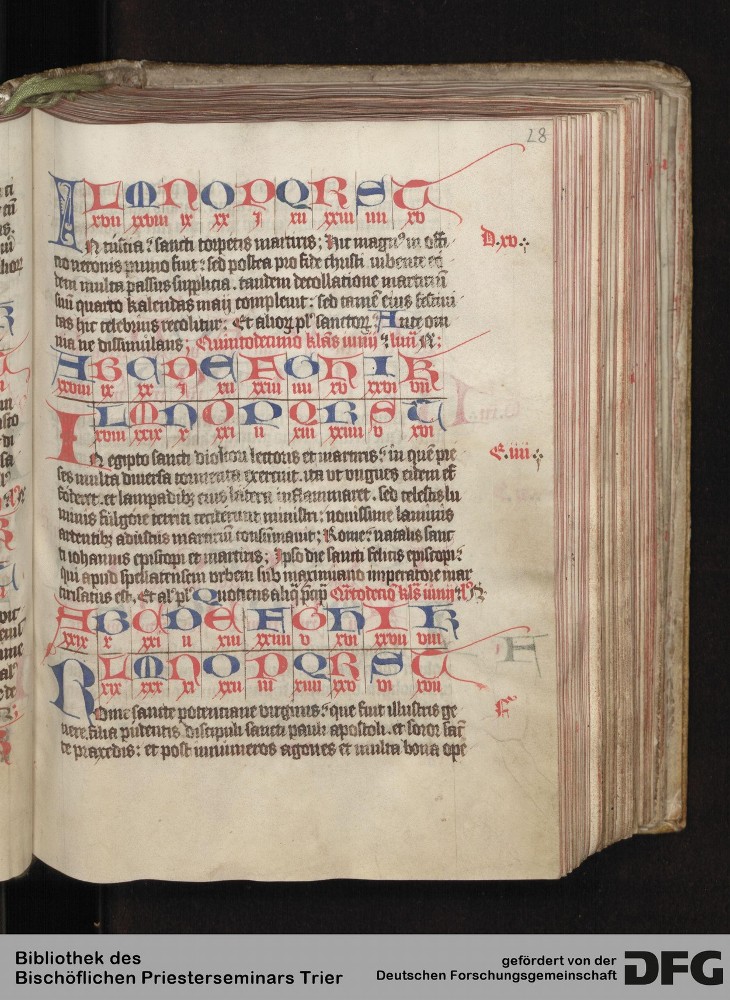 28
L M N O P Q R S T
xvii xxviii ix xx i xii xxiii iiii xv
IN tuscia ⁊ sancti torpetis martiris; Hic magnꝰ in offi
cio neronis primo fuit ⁊ sed postea pro fide christi iubente eo
dem multa passus supplicia. tandem decollatione martiriū
suū quarto kalendas maij compleuit: sed tamē eius festiui
tas hic celebrius recolitur; Et alioꝝ plꝰ sanctoꝝ; Ante om
nia ne dissimilans; Quintodecimo klas iunij ⁊ luñ
D. xv
A B C D E F G H I K
xxviii ix xx i xii xxiii iiii xv xxvi vii
L M N O P Q R S T
xviii xxix x xxi ii xiii xxiiii v xvi
IN egipto sancti dioscori lectoris et martiris ⁊ in quē pre
ses multa diuersa tormenta exercuit. ita vt vngues eidem ef
foderet. et lampadibꝫ eius latera inflammaret. sed celestis lu
minis fulgore territi ceciderunt ministri: nouissime laminis
ardentibꝫ adustus martiriū consūmauit; Rome: natalis sanc
ti iohannis episcopi et martiris; Ipso die sancti felicis episcopi ⁊
qui apud spellatensem vrbem sub maximiano imperatore mar
tirisatus est. Et al' pl' Quociens aliqͣ
E. iiii
A B C D E F G H I K
xxix x xxi ii xiii xxiiii v xvi xxvii viii
L M N O P Q R S T
xix xxx xi xxii iii xiiii xxv vi xvii
Rome sancte potenciane virginis ⁊ que fuit illustris ge
nere. filia pudentis discipuli sancti pauli apostoli. et soror sanc̄
te praxedis: et post innumeros agones et multa bona ope
F
Bibliothek des
Bischöflichen Priesterseminars Trier
gefördert von der
Deutschen Forschungsgemeinschaft
DFG